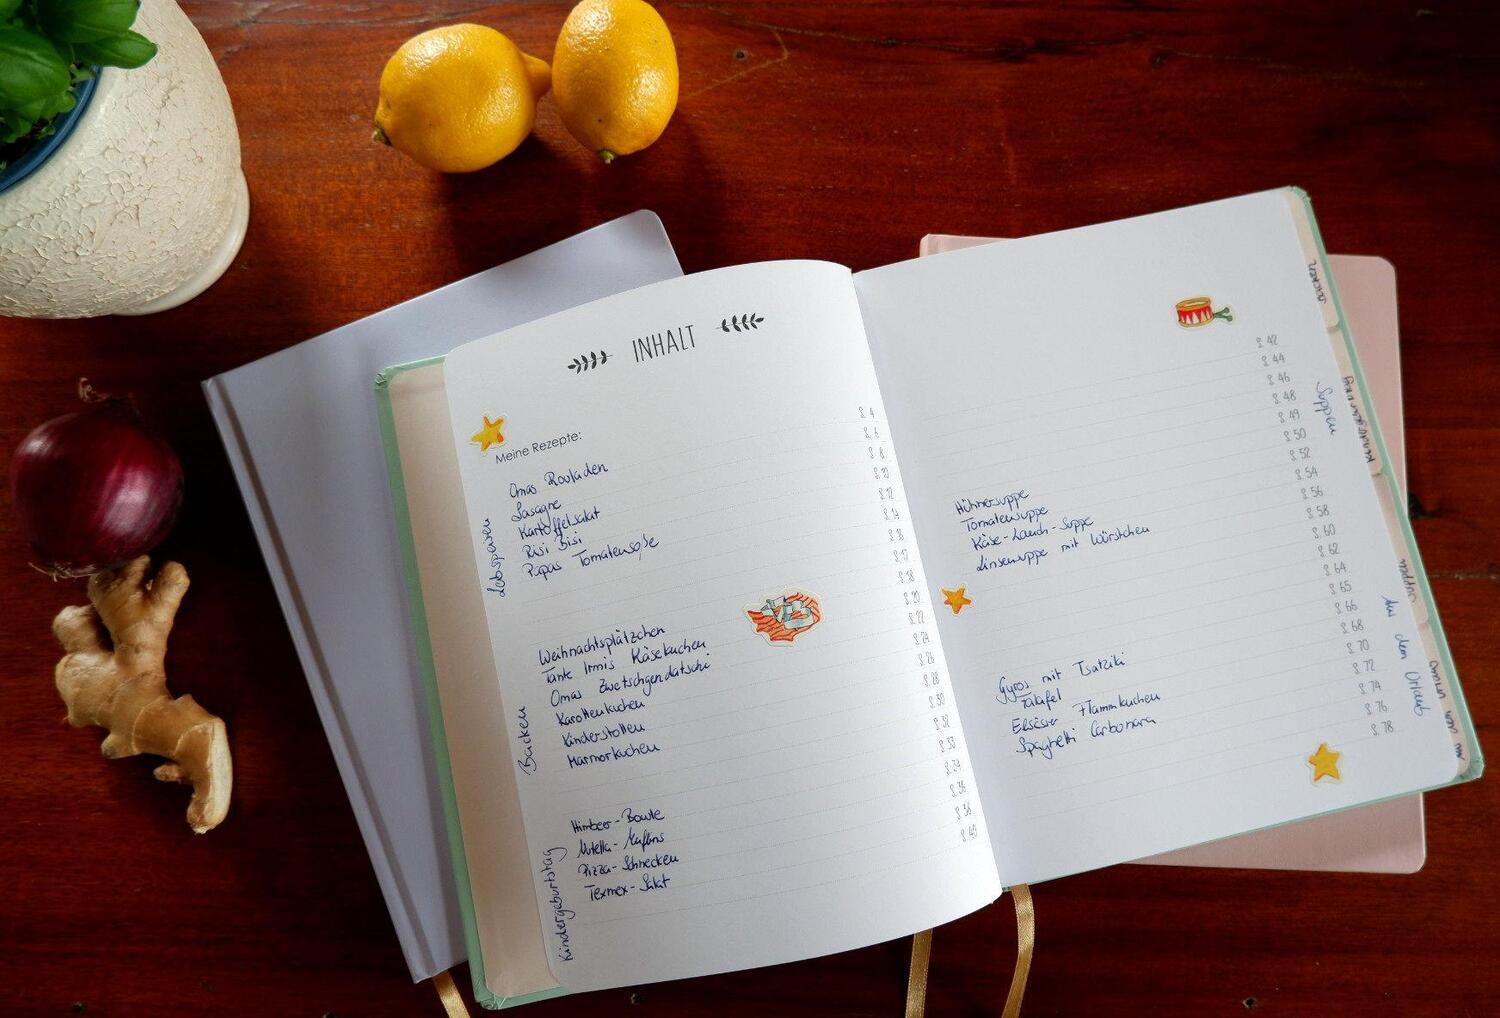 INHALT
Meine Rezepte:
Lebspeisen
Omas Rouladen
Lasagne
Kartoffelsalat
Risi Bisi
Papas Tomatensoße
Backen
Weihnachtsplätzchen
Tante Irmis Käsekuchen
Omas Zwetschgendatschi
Karottenkuchen
Kinderstollen
Marmorkuchen
Kindergeburtstag
Himbeer-Bowle
Nutella-Muffins
Pizza-Schnecken
Texmex-Salat
S. 4
S. 6
S. 8
S. 10
S. 12
S. 14
S. 16
S. 17
S. 18
S. 20
S. 22
S. 24
S. 26
S. 28
S. 30
S. 32
S. 33
S. 34
S. 36
S. 38
S. 40
Suppen
Hühnersuppe
Tomatensuppe
Käse-Lauch-Suppe
Linsensuppe mit Würstchen
Aus dem Urlaub
Gyros mit Tsatziki
Falafel
Elsässer Flammkuchen
Spaghetti Carbonara
S. 42
S. 44
S. 46
S. 48
S. 49
S. 50
S. 52
S. 54
S. 56
S. 58
S. 60
S. 62
S. 64
S. 65
S. 66
S. 68
S. 70
S. 72
S. 74
S. 76
S. 78
Backen
Kindergeburtstag
Suppen
Aus dem Urlaub